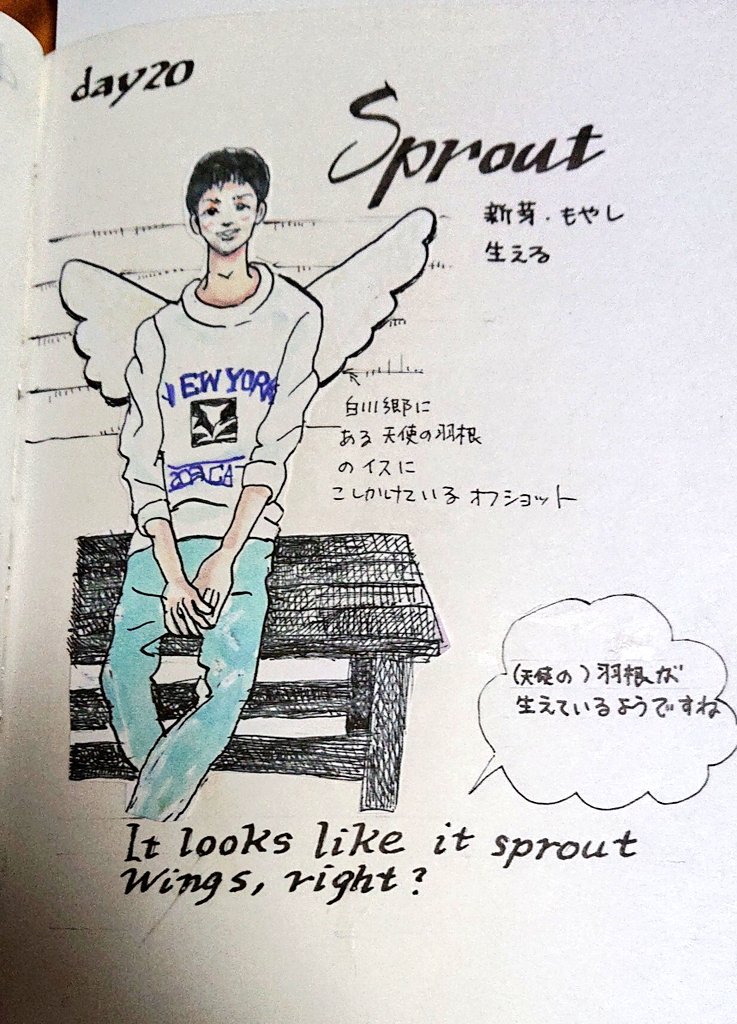 day20
Sprout
新芽・もやし
生える
NEW YORK
白川郷に
ある天使の羽根
のイスに
こしかけている オフショット
(天使の)羽根が
生えているようですね
It looks like it sprout
Wings, right?